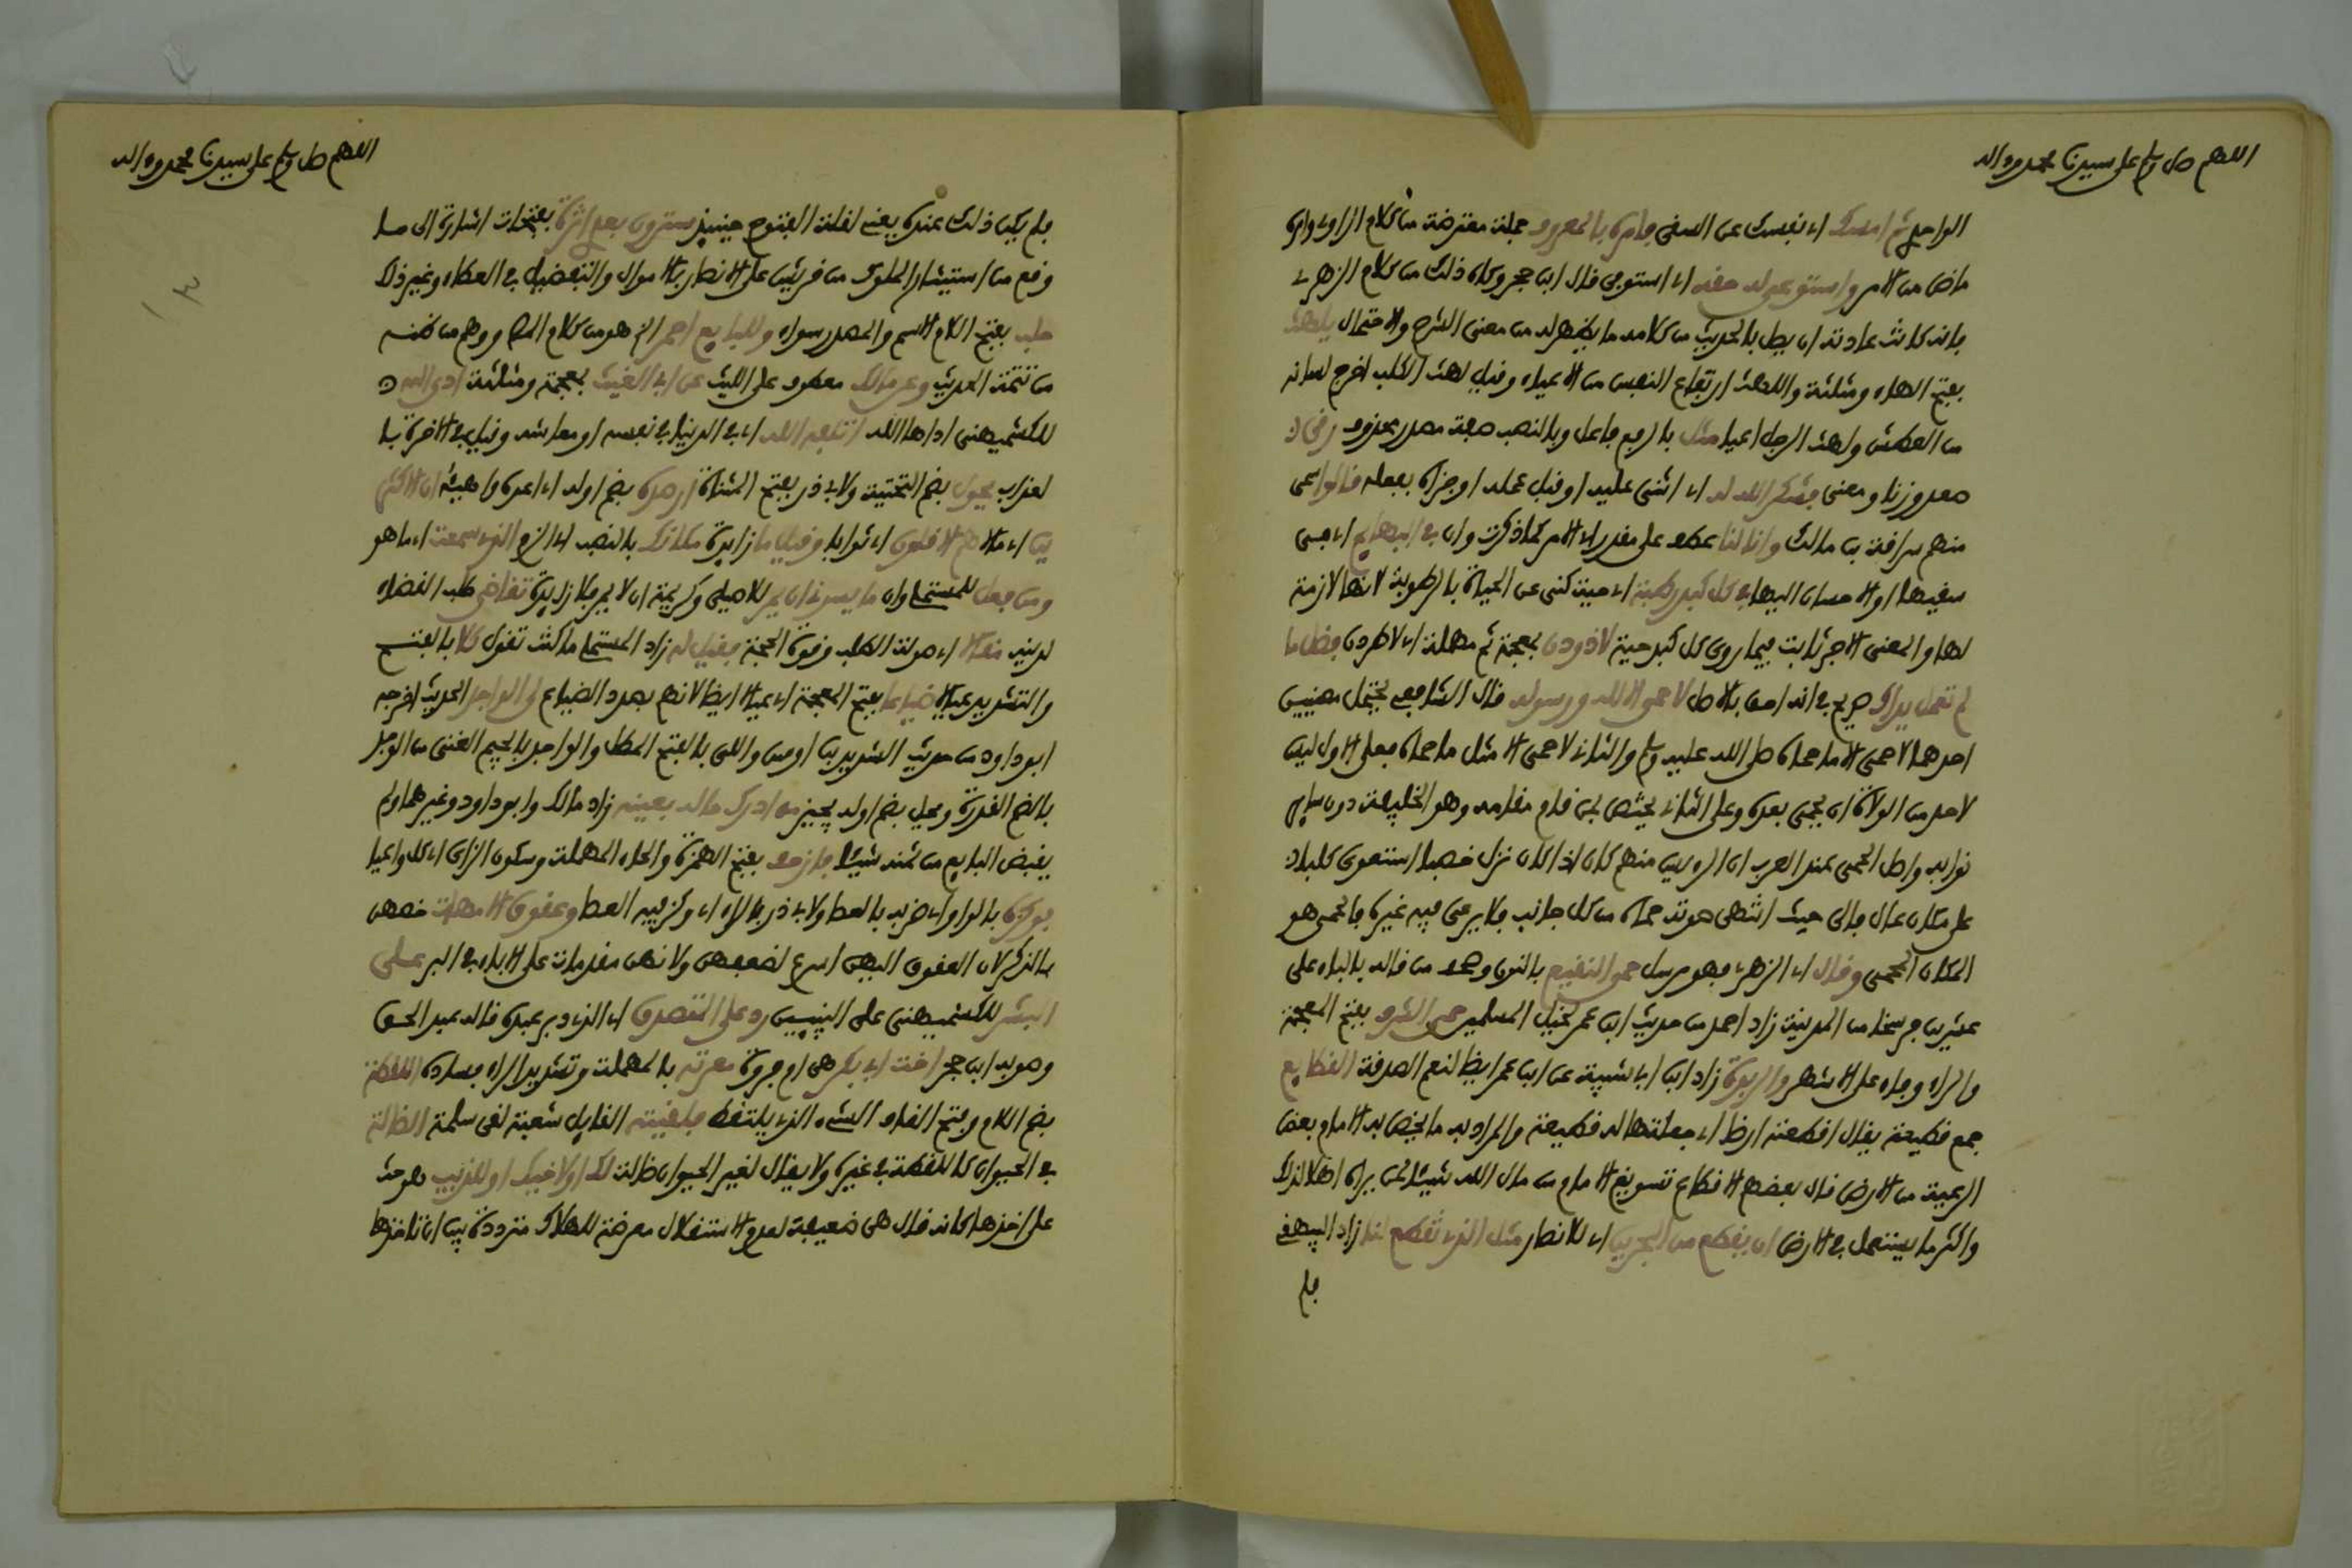 اللهم صل وسلم على سيدنا محمد وءاله
الواحدي ثم امسك اي نفسك عن السقي فامره بالمعروف جملة معترضة من كلام الراوي وامره
ماض من الامر واستوعى له حقه اي استوفى قال ابن حجر وكان ذلك من كلام الزهري
فانه كانت عادته ان يصل بالحديث من كلامه ما يظهر له من معنى الشرح والاحتمال يلهث
بفتح الهاء ومثلثة واللهث ارتفاع النفس من الاعياء وقيل لهث الكلب اخرج لسانه
من العطش ولهث الرجل اعيا مثل بالرفع فاعل وبالنصب صفة مصدر محذوف رقي ك
صعد وزنا ومعنى فشكر الله له اي اثنى عليه او قبل عمله او جزاه بفعله قالوا سمى
منهم سراقة بن مالك وان لنا عطف على مقدر اي الامر كما ذكرت وان في البهايم اي في
سقيها او الاحسان اليها في كل كبد رطبة اي حية كنى عن الحياة بالرطوبة لانها لازمة
لها والمعنى الاجر ثابت فيما روى كل كبد حية لاذودن بمعجمة ثم مهملة اي لاطردن فضل ما
لم تعمل يداك صريح في انه احق بالاصل لا حمى الا لله ورسوله قال الشافعي يحتمل معنيين
احدهما لا حمى الا ما حماه صلى الله عليه وسلم والثاني لا حمى الا مثل ما حماه فعلى الاول ليس
لاحد من الولاة ان يحمي بعده وعلى الثاني يختص بمن قام مقامه وهو الخليفة دون ساير
نوابه واصل الحمى عند العرب ان الرءيس منهم كان اذا كان نزل خصبا استعوى كلبا
على مكان عال فالى حيث انتهى صوته حماه من كل جانب فلا يرعى فيه غيره فالحمى هو
المكان المحمي وقال اي الزهري فهو مرسل حمى النقيع بالنون وصحف من قاله بالباء على
عشرين فرسخا من المدينة زاد احمد من حديث ابن عمر لخيل المسلمين حمى الشرف بفتح المعجمة
والراء وجاء على الاشهر والربذة زاد ابن ابي شيبة عن ابن عمر ايضا لنعم الصدقة القطايع
جمع قطيعة يقال اقطعته ارضا اي جعلتها له قطيعة والمراد به ما يخص به الامام بعض
الرعية من الارض قال بعضهم الاقطاع تسويغ الامام من مال الله شيئا لمن يراه اهلا لذلك
واكثر ما يستعمل في الارض ان يقطع من البحرين اي للانصار مثل الذي تقطع لنا زاد البيهقي
فلم
اللهم صل وسلم على سيدنا محمد وءاله
فلم يكن ذلك عنده يعني لقلة الفتوح حينيذ سترون بعدي اثرة بفتحات اشارة الى ما
وقع من استيثار الملوك من قريش على الانصار بالاموال والتفضيل في العطاء وغير ذلك
حلب بفتح اللام الاسم والمصدر سواء وللبايع الممر الخ هو من كلام المص ووهم من ظنه
من تتمة الحديث وعن مالك معطوف على الليث عن ابي الغيث بمعجمة ومثلثة ادى الله
للكشميهني اداها الله اتلفه الله اي في الدنيا في نفسه او معاشه وقيل في الاخرة با
لعذاب يحول بضم التحتية ولابي ذر بفتح المثناة ارصده بضم اوله اي اعده واهييه ان الاكثرين
اي مالا هم الاقلون اي ثوابا وقليل ما زايدة مكانك بالنصب اي الزم الذي سمعت اي ما هو
ومن فعل للمستملي وان ما يسرني ان يمر للاصيلي وكريمة ان لا يمر فلا زايدة تقاضى طلب القضاء
لدينه مقالا اي صولة الطلب وقوة الحجة فقيل له زاد المستملي ما كنت تقول كلا بالفتح
والتشديد عيالا ضياعا بفتح المعجمة اي عيالا ايضا لانهم بصدد الضياع لي الواجد الحديث اخرجه
ابو داود من حديث الشريد بن اوس واللي بالفتح المطل والواجد بالجيم الغني من الوجد
بالضم القدرة ويحل بضم اوله يجيز من ادرك ماله بعينه زاد مالك وابو داود وغيرهما ولم
يقبض البايع من ثمنه شيئا فازحف بفتح الهمزة والحاء المهملة وسكون الزاي اي كل واعيا
فوكزه بالواو اي ضربه بالعصا ولابي ذر بالراء اي ركز فيه العصا وعقوق الامهات خصهن
بالذكر لان العقوق اليهن اسرع لضعفهن ولانهن مقدمات على الاباء في البر على
البشر للكشميهني على اليتيمين رد على المتصدق اي الذي دبر عبده قاله عبد الحق
وصوبه ابن حجر اخت ابي بكر هي ام فروة معرته بالمهملة وتشديد الراء فساده اللقطة
بضم اللام وفتح القاف الشيء الذي يلتقط فلقيته القايل شعبة لقي سلمة الضالة
في الحيوان كاللقطة في غيره ولا يقال لغير الحيوان ضالة لك او لاخيك او للذيب هو حث
على اخذها كانه قال هي ضعيفة لعدم الاستقلال معرضة للهلاك مترددة بين ان تاخذها